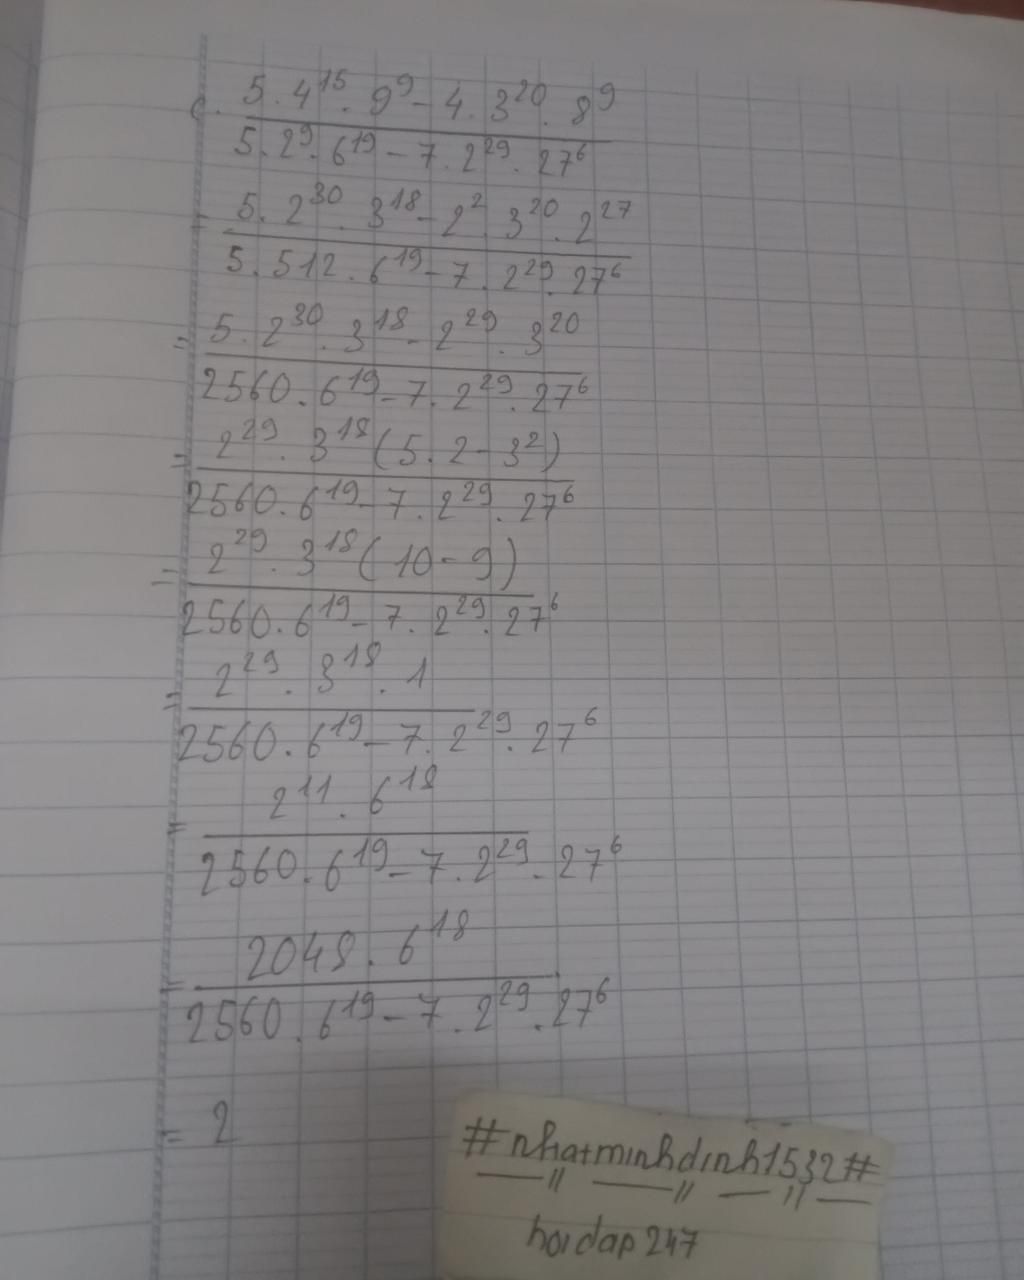 c. 5 . 4^15 . 9^9 - 4 . 3^20 . 8^9
5 . 2^9 . 6^19 - 7 . 2^29 . 27^6
= 5 . 2^30 . 3^18 - 2^2 . 3^20 . 2^27
5 . 512 . 6^19 - 7 . 2^29 . 27^6
= 5 . 2^30 . 3^18 - 2^29 . 3^20
2560 . 6^19 - 7 . 2^29 . 27^6
= 2^29 . 3^18 (5 . 2 - 3^2)
2560 . 6^19 - 7 . 2^29 . 27^6
= 2^29 . 3^18 (10 - 9)
2560 . 6^19 - 7 . 2^29 . 27^6
= 2^29 . 3^18 . 1
2560 . 6^19 - 7 . 2^29 . 27^6
= 2^11 . 6^18
2560 . 6^19 - 7 . 2^29 . 27^6
= 2048 . 6^18
2560 . 6^19 - 7 . 2^29 . 27^6
= 2
#nhatminhdinh1532#
hoidap247